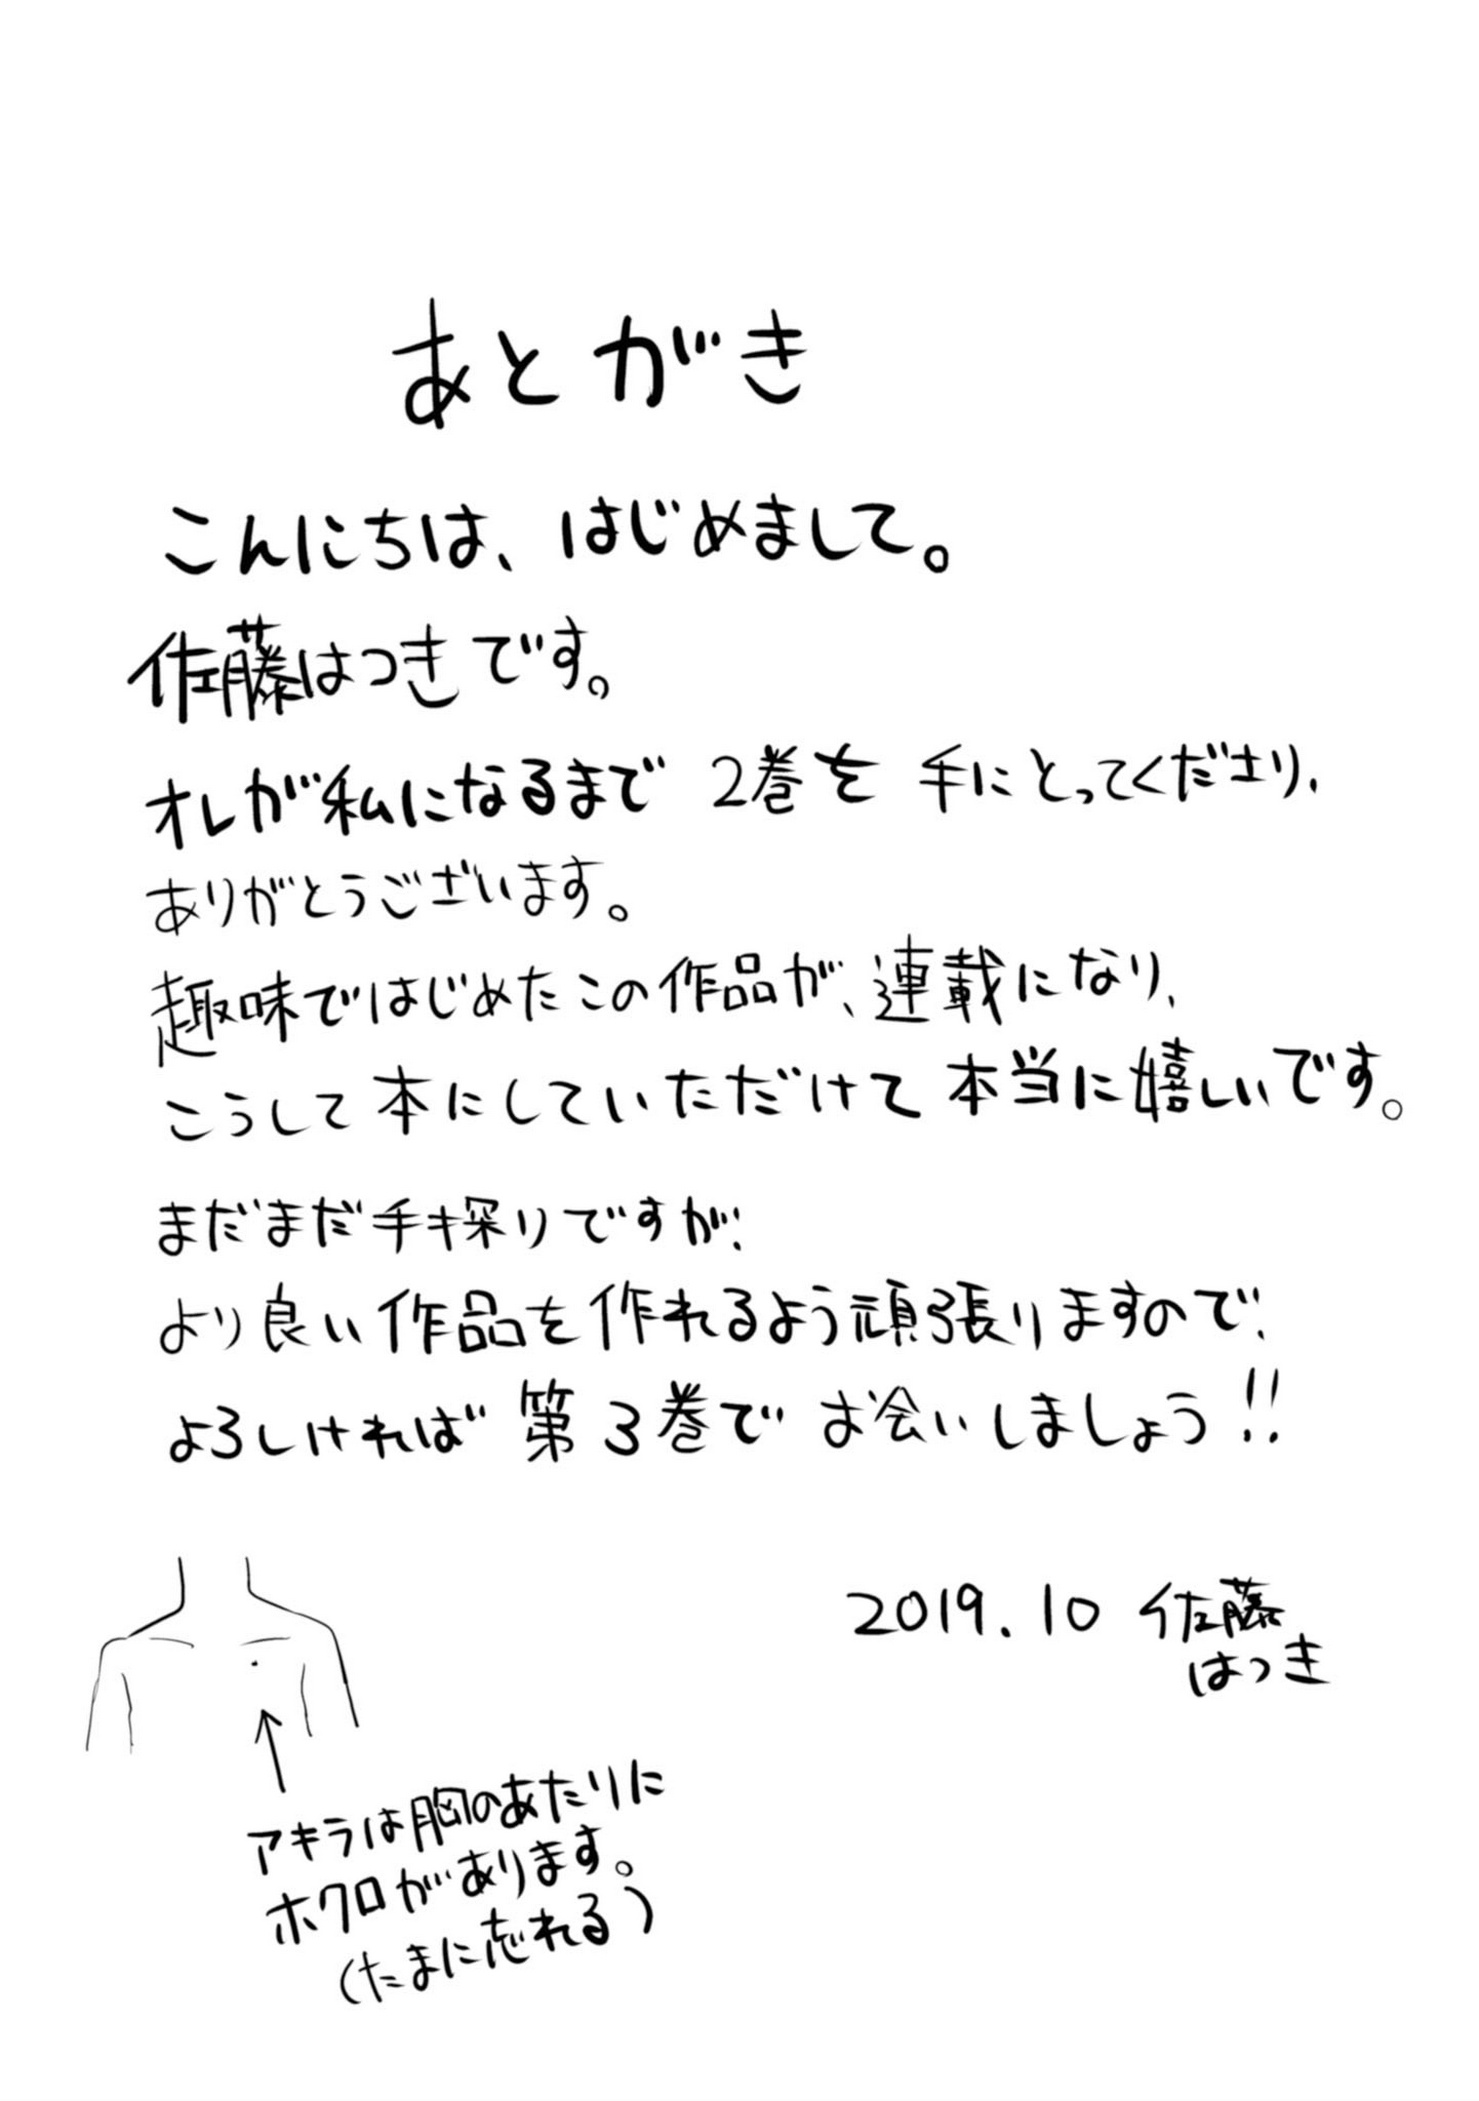 あとがき
こんにちは、はじめまして。
佐藤はつきです。
オレが私になるまで 2巻を 手にとってくださり、
ありがとうございます。
趣味ではじめたこの作品が、連載になり、
こうして本にしていただけて本当に嬉しいです。
まだまだ手探りですが、
より良い作品を作れるよう頑張りますので、
よろしければ 第3巻で お会いしましょう!!
2019.10 佐藤
はつき
アキラは胸のあたりに
ホクロがあります。
(たまに忘れる)